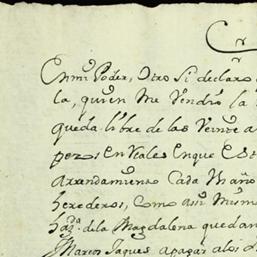 En mi Poder, Otro Si declaro
la, quien me Vendio la
queda libre de las Veinte a
pezos en reales en que Est
arrendamiento Cada Un año
herederos, como asi mismo
hazda. de la Magdalena quedan
Marcos Jaques a pagar a los